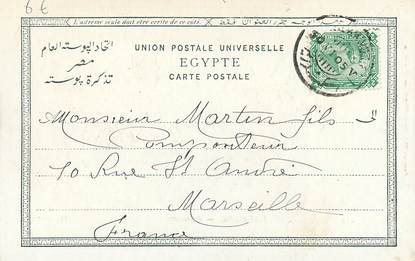 6€
L'adresse seule doit être écrite de ce coté.
UNION POSTALE UNIVERSELLE
EGYPTE
CARTE POSTALE
اتحاد البوستة العام
مصر
تذكرة بوستة
Monsieur Martin fils
10 Rue St André
Marseille
France